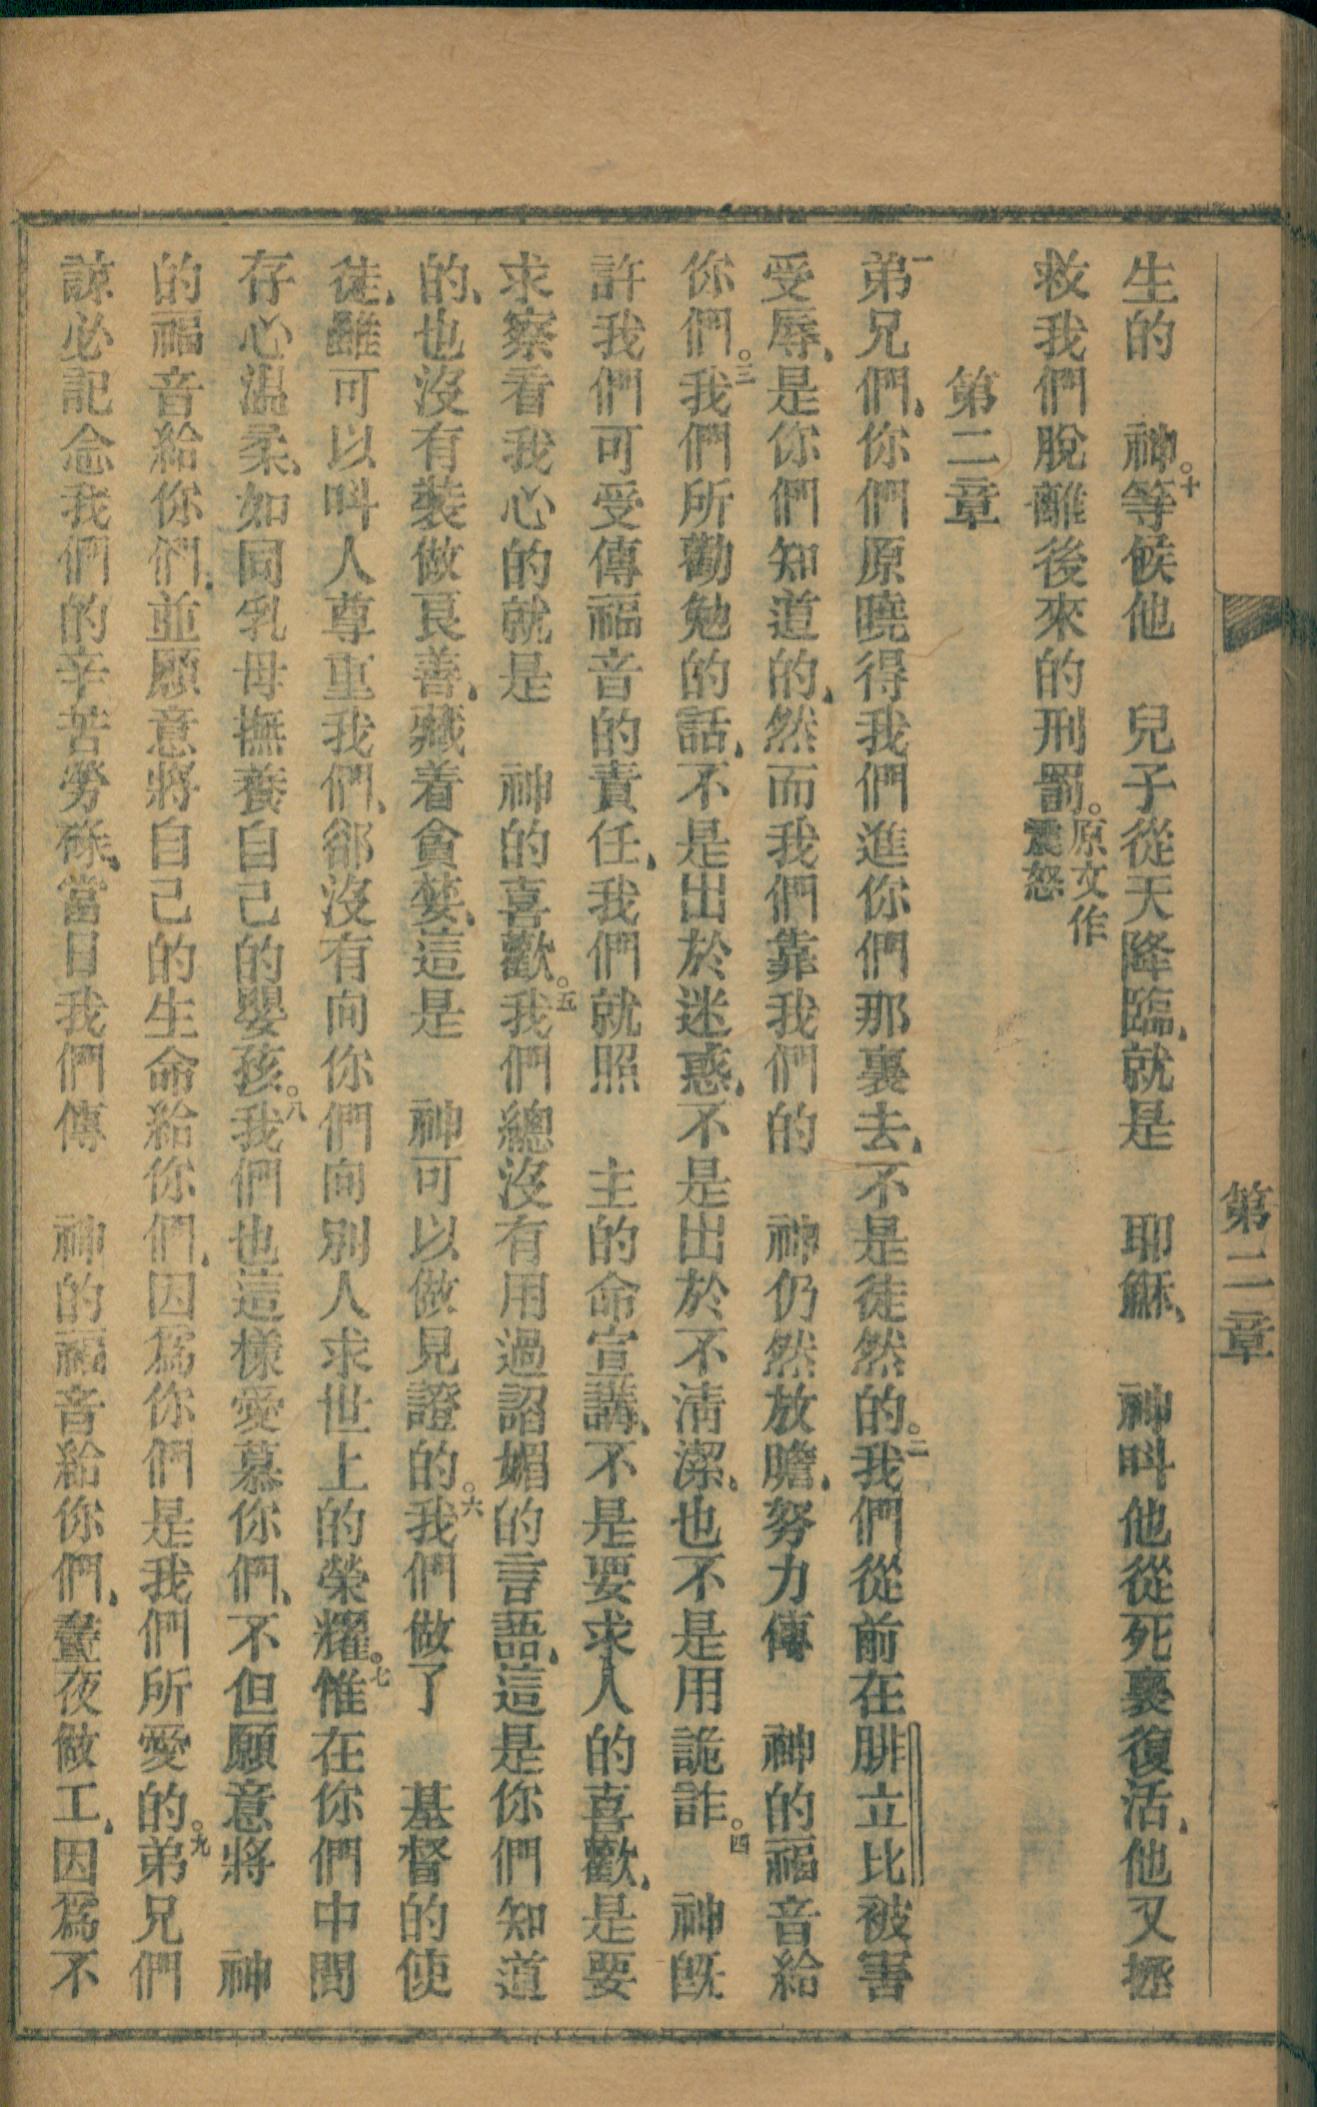 第二章
生的　神。十等候他　兒子從天降臨、就是　耶穌、　神呌他從死裏復活、他又拯
救我們脫離後來的刑罰。原文作震怒
第二章
一弟兄們、你們原曉得我們進你們那裏去、不是徒然的。二我們從前在腓立比被害
受辱、是你們知道的、然而我們靠我們的　神仍然放膽、努力傳　神的福音給
你們。三我們所勸勉的話、不是出於迷惑、不是出於不淸潔、也不是用詭詐。四　神旣
許我們可受傳福音的責任、我們就照　主的命宣講、不是要求人的喜歡、是要
求察看我心的就是　神的喜歡。五我們總沒有用過諂媚的言語、這是你們知道
的、也沒有裝做良善、藏着貪婪、這是　神可以做見證的。六我們做了　基督的使
徒、雖可以呌人尊重我們、郤沒有向你們向別人求世上的榮耀。七惟在你們中間
存心溫柔、如同乳母撫養自己的嬰孩。八我們也這樣愛慕你們、不但願意將　神
的福音給你們、並願意將自己的生命給你們、因爲你們是我們所愛的。九弟兄們
諒必記念我們的辛苦勞碌、當日我們傳　神的福音給你們、晝夜做工、因爲不